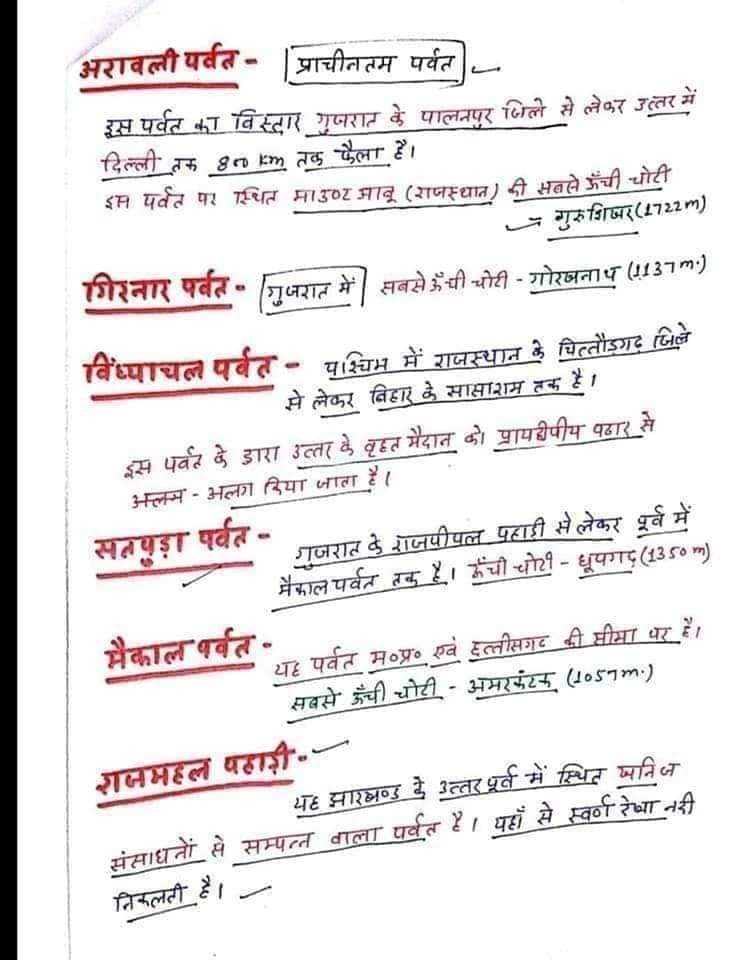 अरावली पर्वत - प्राचीनतम पर्वत
इस पर्वत का विस्तार गुजरात के पालनपुर जिले से लेकर उत्तर में
दिल्ली तक 800 km तक फैला है।
इस पर्वत पर स्थित माउण्ट आबू (राजस्थान) की सबसे ऊँची चोटी
गुरुशिखर (1722m)
गिरनार पर्वत - गुजरात में सबसे ऊँची चोटी - गोरखनाथ (1137m.)
विंध्याचल पर्वत - पश्चिम में राजस्थान के चित्तौड़गढ़ जिले
से लेकर बिहार के सासाराम तक है।
इस पर्वत के द्वारा उत्तर के वृहत मैदान को प्रायद्वीपीय पठार से
अलग - अलग किया जाता है।
सतपुड़ा पर्वत - गुजरात के राजपीपल पहाडी से लेकर पूर्व में
मैकाल पर्वत तक है। ऊँची चोटी - धूपगढ़ (1350m)
मैकाल पर्वत - यह पर्वत म०प्र० एवं छत्तीसगढ की सीमा पर है।
सबसे ऊँची चोटी - अमरकंटक (1057m.)
राजमहल पहाड़ी - यह झारखण्ड के उत्तर पूर्व में स्थित खनिज
संसाधनों से सम्पन्न वाला पर्वत है। यहाँ से स्वर्ण रेखा नदी
निकलती है।